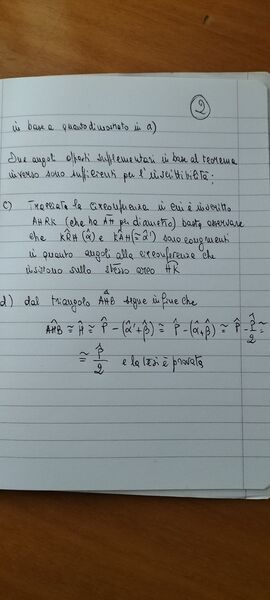 2
in base a quanto dimostrato in a)
Due angoli opposti supplementari in base al teorema
inverso sono sufficienti per l'inscrittibilità;
c) Tracciata la circonferenza in cui è inscritto
AHRK (che ha AH per diametro) basta osservare
che KR̂H (α̂) e KÂH (≅α̂') sono congruenti
in quanto angoli alla circonferenza che
insistono sullo stesso arco HK
d) dal triangolo AĤB segue infine che
AĤB ≅ Ĥ ≅ P̂ - (α̂'+β̂) ≅ P̂ - (α̂+β̂) ≅ P̂ - P̂/2 ≅
≅ P̂/2 e la tesi è provata